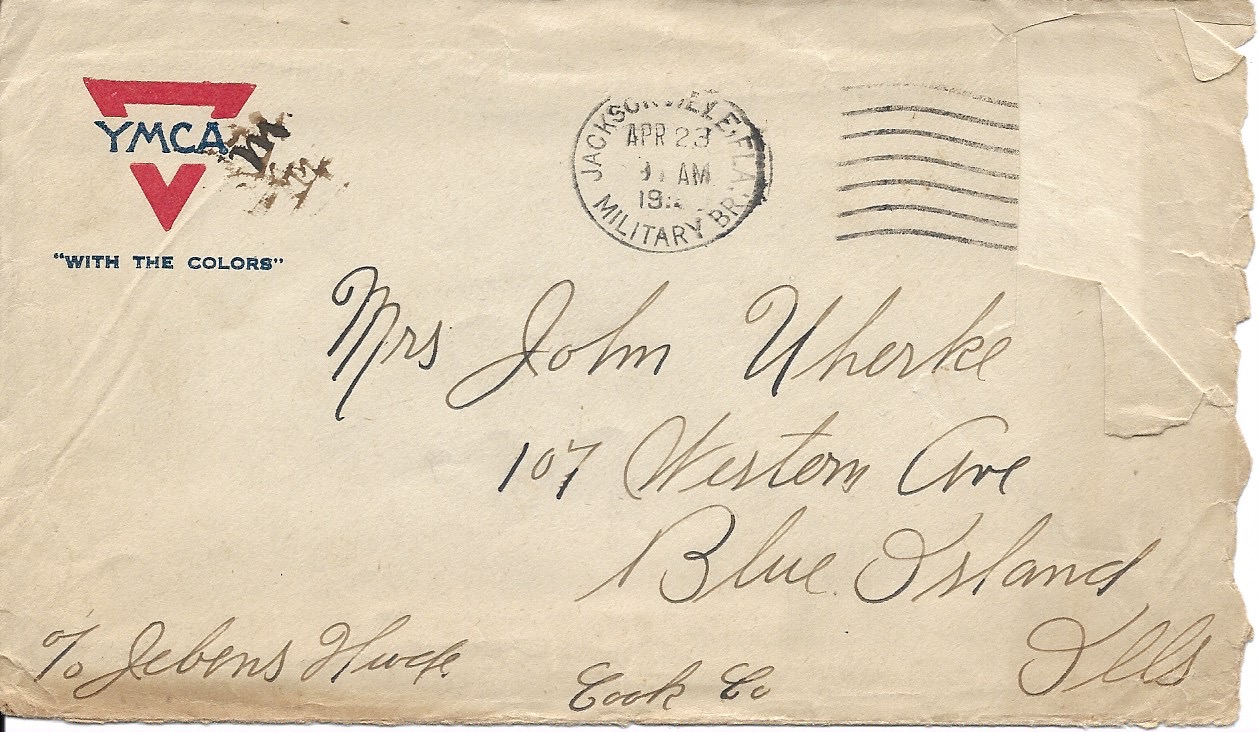 YMCA
"WITH THE COLORS"
JACKSONVILLE, FLA.
APR 23
AM
MILITARY BR.
Mrs John Uherke
107 Western Ave
Blue Island
Ills
Cook Co
c/o Jebens Hwde.